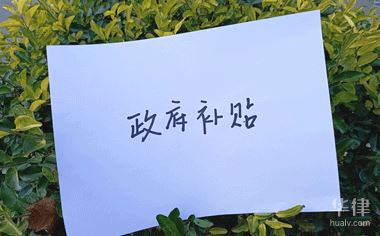 政府补贴
华律
hualv.com